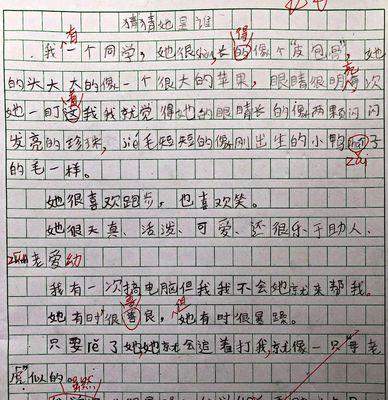 猜猜她是谁
我有一个同学，她很shòu，长的得像个"皮包骨"，她
的头大大的像一个很大的苹果，眼睛很明亮，次
她一盯这着我我就觉得她的眼睛长的像两颗闪闪
发亮的珍珠，jié毛短短的像刚出生的小鸭zǎi子
的毛一样。
她很喜欢跑步，也喜欢笑。
她很天真、活泼、可爱、还很乐于助人、
老爱幼
我有一次搞电脑但我我不会她就来帮我。
她有时很善良，但她有时很暴躁。
只要rě了她她就会追着打我，就像一只老
虎似的。虽然